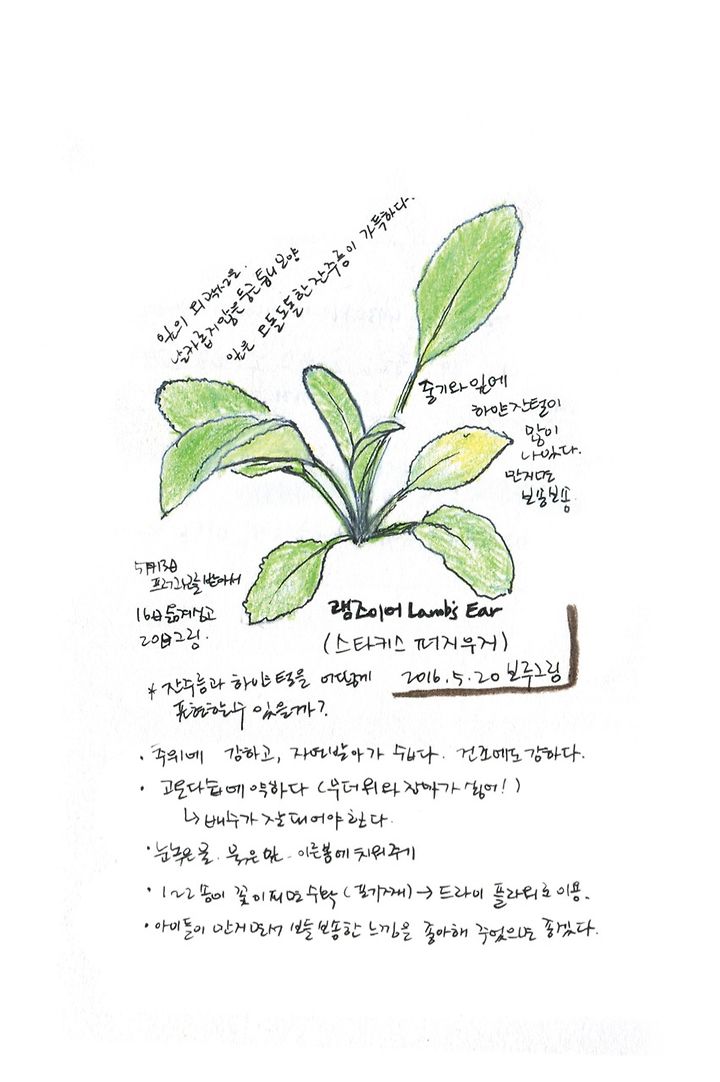 잎의 피팩시그을.
날카롭지 않은 둥근 톱니 모양
잎은 오돌도돌한 잔주름이 가득하다.
줄기와 잎에
하얀 잔털이
많이
나있다.
만지면
보송보송.
5月13日
받아서
16日 옮겨심고
20日 그림.
램즈이어 Lamb's Ear
(스타키스 퍼지우저)
2016.5.20 보루그림
* 잔주름과 하얀 털을 어떻게
표현할 수 있을까?
· 추위에 강하고, 자연발아가 쉽다. 건조에도 강하다.
· 고온다습에 약하다 (무더위와 장마가 싫어!)
↳ 배수가 잘 되어야 한다.
· 눈녹은 물. 묵은 잎. 이른 봄에 치워주기
· 122송이 꽃이 지면 수확 (포기째) → 드라이 플라워로 이용.
· 아이들이 만지면서 보들보송한 느낌을 좋아해 주었으면 좋겠다.